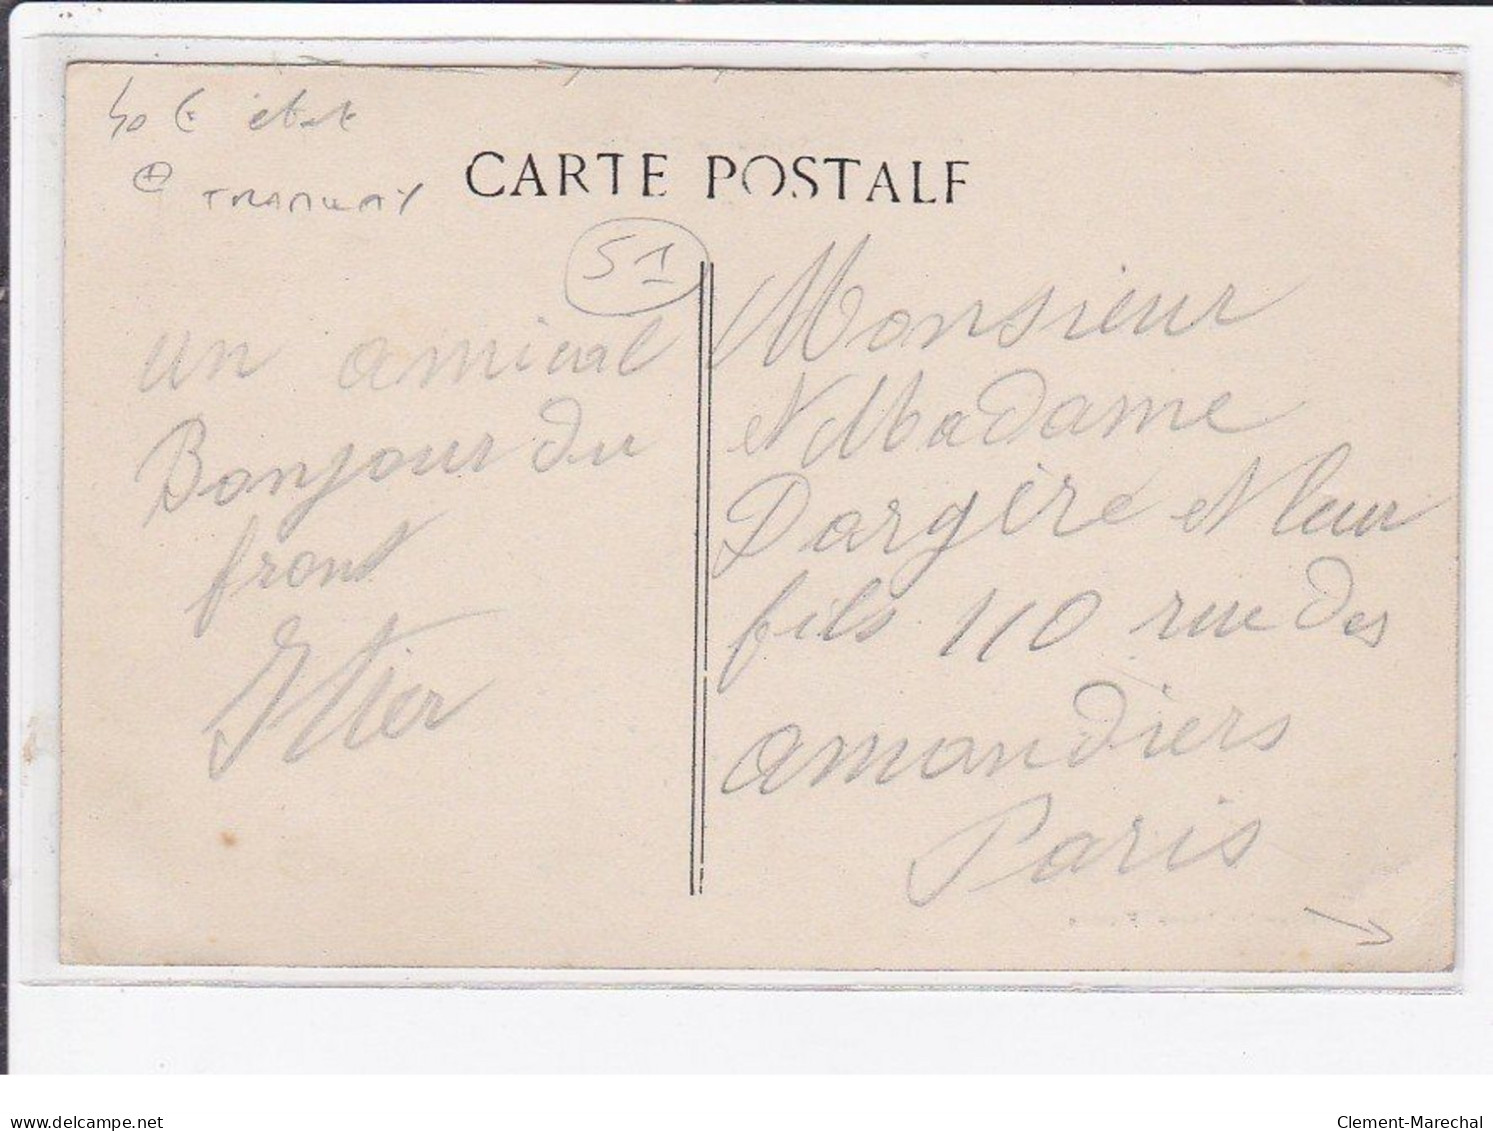 40 € état
TRAMWAY
CARTE POSTALE
51
un amical
Bonjour du
front
Ittier
Monsieur
et Madame
Dargère et leur
fils 110 rue des
amandiers
Paris
delcampe.net
Clement-Marechal